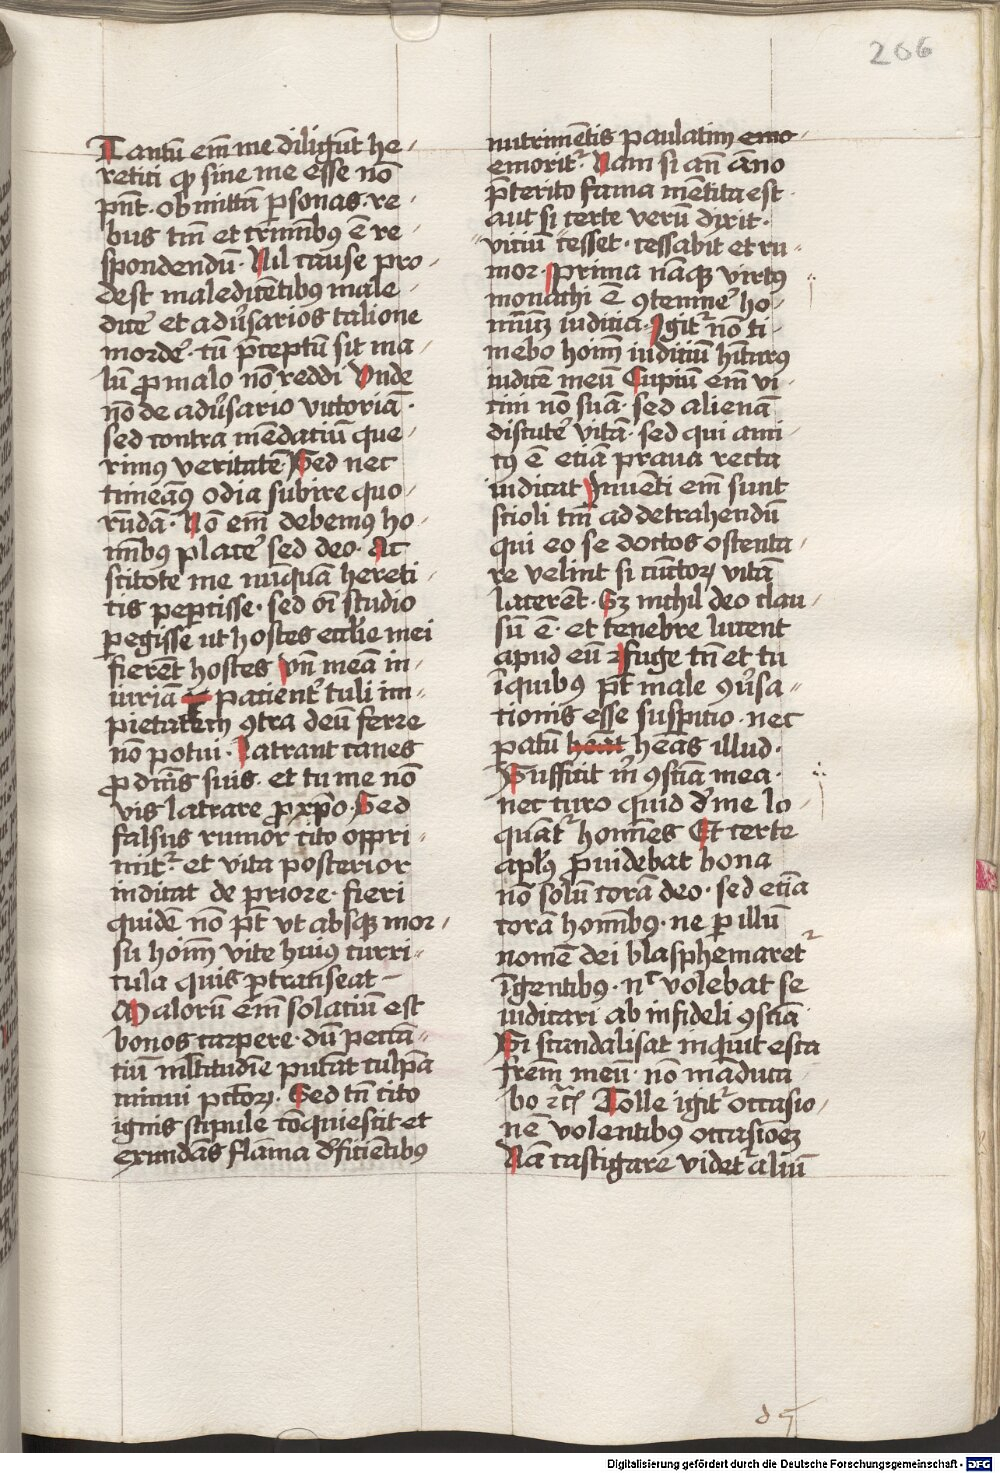 206
Tantū em̄ me diligūt he-
retici qꝫ sine me esse nō
pn̄t. ob mittā ꝑsonas. re-
bus tm̄ et crimībꝰ ē re-
spondendū. Nil cause pro-
dest maledicētibꝰ male-
dicē et adūsarios talione
mordē. cū p̄ceptū sit ma-
lū ꝓ malo nō reddi Unde
nō de adūsario victoriā.
sed contra mēdaciū que-
rimꝰ veritatē Sed nec
timeāꝰ odia subire quo-
rūdā. Nō em̄ debemꝰ ho-
mībus placē sed deo. Ac
scitote me nūquā hereti-
cis peꝑcisse. sed oī studio
ꝑegisse ut hostes ecclīe mei
fierēt hostes Un̄ meā in-
iuriā patienť tuli im-
pietatem ꝯtra deū ferre
nō potui. Latrant canes
ꝓ dn̄is suis. et tu me nō
vis latrare ꝓ xp̄o. Sed
falsus rumor cito oppri-
mit᷑. et vita posterior
iudicat de priore. fieri
quidē nō pt̄ vt absqꝫ mor-
su hoīm vite huiꝰ curri-
cula quis ꝑtranseat
Malorū em̄ solaciū est
bonos carpere. dū peccā-
tiū mltitudīe putāt culpā
minui pctōꝝ. Sed tn̄ cito
ignis stipule cōquiescit. et
exundās flāma dꝰficiētibus
nutrimētis paulatim emo-
emorit᷑. Nam si an̄ āno
p̄terito fama mētita est.
aut si certe verū dixit.
viciū cesset. cessabit et ru-
mor. Prima nāqꝫ virtꝰ
monachi ē ꝯtemnē ho-
minūꝫ iudicia. Igit᷑ nō ti-
mebo hoīm iudiciū hīturꝰ
iudicē meū Cupiūt em̄ vi-
cini nō suā. sed alienā
discutē vitā. sed qui ami-
cꝰ ē etiā praua recta
iudicat Inuēti em̄ sunt
scioli tm̄ ad detrahendū
qui eo se doctos ostenta-
re velint si cūctoꝝ vitā
lacerēt. Sꝫ nichil deo clau-
sū ē. et tenebre lucent
apud eū ⁊ fuge tn̄ et tu
ī quibus pt̄ male ꝯūsa-
tionis esse suspicio. nec
patū heāt heas illud.
Sufficit m̄ ꝯsciā mea.
nec curo quid dꝰ me lo-
quāt᷑ homīes Et certe
apl̄us ꝓuidebat bona
nō solū corā deo. sed etiā
corā homībꝰ. ne ꝑ illū
nomē dei blasphemaret᷑
ī gentibus. nͨ volebat se
iudicari ab infideli ꝯsciā
Si scandalisat inquit esca
frēm meū. nō māduca-
bo ⁊c̄ Tolle igit᷑ occasio-
nē volentibus occasionēꝫ
Nā castigare videt᷑ aliū
Digitalisierung gefördert durch die Deutsche Forschungsgemeinschaft - DFG